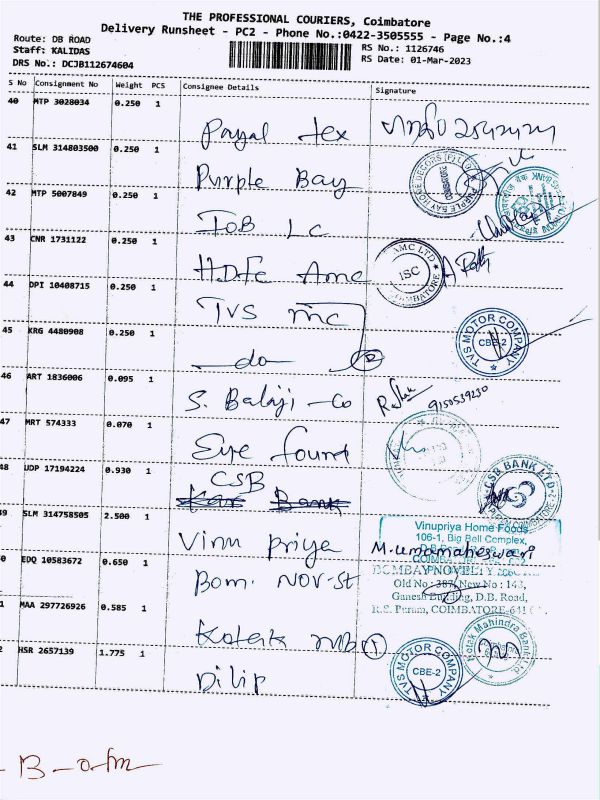 THE PROFESSIONAL COURIERS, Coimbatore
Delivery Runsheet - PC2 - Phone No.:0422-3505555 - Page No.:4
Route: DB ROAD
Staff: KALIDAS
DRS No.: DCJB112674604
RS No.: 1126746
RS Date: 01-Mar-2023
S No Consignment No Weight PCS Consignee Details Signature
40 MTP 3028034 0.250 1 Payal tex
41 SLM 314803500 0.250 1 Purple Bay
42 MTP 5007849 0.250 1 IOB LC
43 CNR 1731122 0.250 1 HDFC Amc
AMC LTD
ISC
COIMBATORE
44 DPI 10408715 0.250 1 TVS mc
45 KRG 4480908 0.250 1 -do- 2
TVS MOTOR COMPANY
CBE-2
46 ART 1836006 0.095 1 S. Balaji - Co
9150539230
47 MRT 574333 0.070 1 Eye found
48 UDP 17194224 0.930 1 CSB
Bank
CSB BANK LTD
49 SLM 314758505 2.500 1 Vinu priya M. umamaheswari
Vinupriya Home Foods
106-1, Big Bell Complex,
0 EDQ 10583672 0.650 1 Bom. Nov-st
BOMBAY NOVELTY
Old No : 387, New No : 143,
Ganesh Building, D.B. Road,
R.S. Puram, COIMBATORE-641
1 MAA 297726926 0.585 1 Kotak MB 1
Kotak Mahindra Bank Ltd
2 HSR 2657139 1.775 1 Dilip
TVS MOTOR COMPANY
CBE-2